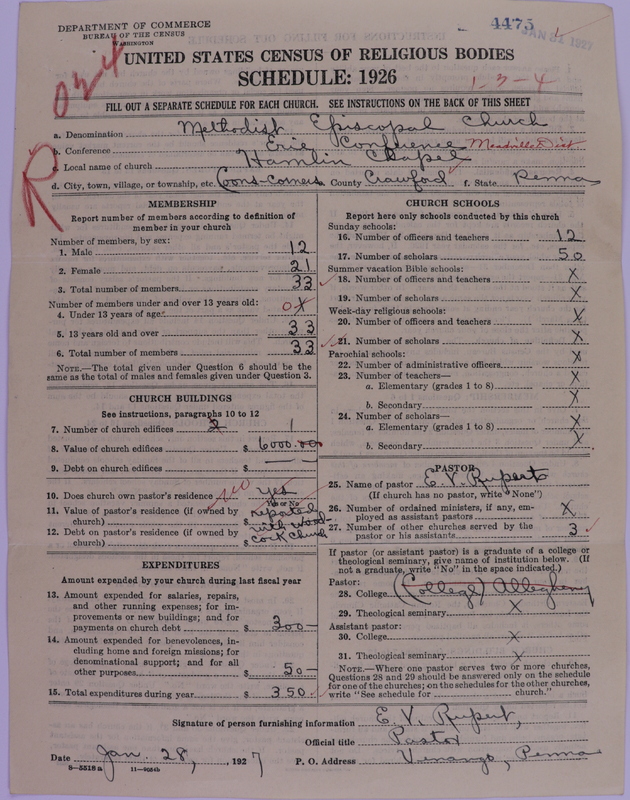 4475
JAN 31 1927
DEPARTMENT OF COMMERCE
BUREAU OF THE CENSUS
WASHINGTON
UNITED STATES CENSUS OF RELIGIOUS BODIES
SCHEDULE: 1926
1-3-4
FILL OUT A SEPARATE SCHEDULE FOR EACH CHURCH. SEE INSTRUCTIONS ON THE BACK OF THIS SHEET
a. Denomination Methodist Episcopal Church
b. Conference Erie Conference Meadville Dist
c. Local name of church Hamlin Chapel
d. City, town, village, or township, etc. Coons-corners County Crawford f. State Penna
R
MEMBERSHIP
Report number of members according to definition of
member in your church
Number of members, by sex:
1. Male 12
2. Female 21
3. Total number of members 33
Number of members under and over 13 years old:
4. Under 13 years of age 0 X
5. 13 years old and over 33
6. Total number of members 33
NOTE.—The total given under Question 6 should be
same as the total of males and females given under Question 3.
CHURCH BUILDINGS
See instructions, paragraphs 10 to 12
7. Number of church edifices 2 1
8. Value of church edifices $ 6000.00
9. Debt on church edifices $ —
10. Does church own pastor's residence no yes
Yes or No
11. Value of pastor's residence (if owned by
church) $ reported
12. Debt on pastor's residence (if owned by
church) $ with Wood-
cock Church
EXPENDITURES
Amount expended by your church during last fiscal year
13. Amount expended for salaries, repairs,
and other running expenses; for im-
provements or new buildings; and for
payments on church debt $ 300—
14. Amount expended for benevolences, in-
cluding home and foreign missions; for
denominational support; and for all
other purposes $ 50—
15. Total expenditures during year $ 350.
CHURCH SCHOOLS
Report here only schools conducted by this church
Sunday schools:
16. Number of officers and teachers 12
17. Number of scholars 50
Summer vacation Bible schools:
18. Number of officers and teachers X
19. Number of scholars X
Week-day religious schools:
20. Number of officers and teachers X
21. Number of scholars X
Parochial schools:
22. Number of administrative officers X
23. Number of teachers—
a. Elementary (grades 1 to 8) X
b. Secondary X
24. Number of scholars—
a. Elementary (grades 1 to 8) X
b. Secondary X
PASTOR
25. Name of pastor E. V. Rupert
(If church has no pastor, write "None")
26. Number of ordained ministers, if any, em-
ployed as assistant pastors X
27. Number of other churches served by the
pastor or his assistants 3
If pastor (or assistant pastor) is a graduate of a college or
theological seminary, give name of institution below. (If
not a graduate, write "No" in the space indicated.)
Pastor:
28. College (College) Allegheny
29. Theological seminary X
Assistant pastor:
30. College X
31. Theological seminary X
NOTE.—Where one pastor serves two or more churches,
Questions 28 and 29 should be answered only on the schedule
for one of the churches; on the schedules for the other churches,
write "See schedule for church."
Signature of person furnishing information E. V. Rupert,
Official title Pastor
Date Jan. 28, , 1927 P. O. Address Venango, Penna
8—5518a 11—9054b